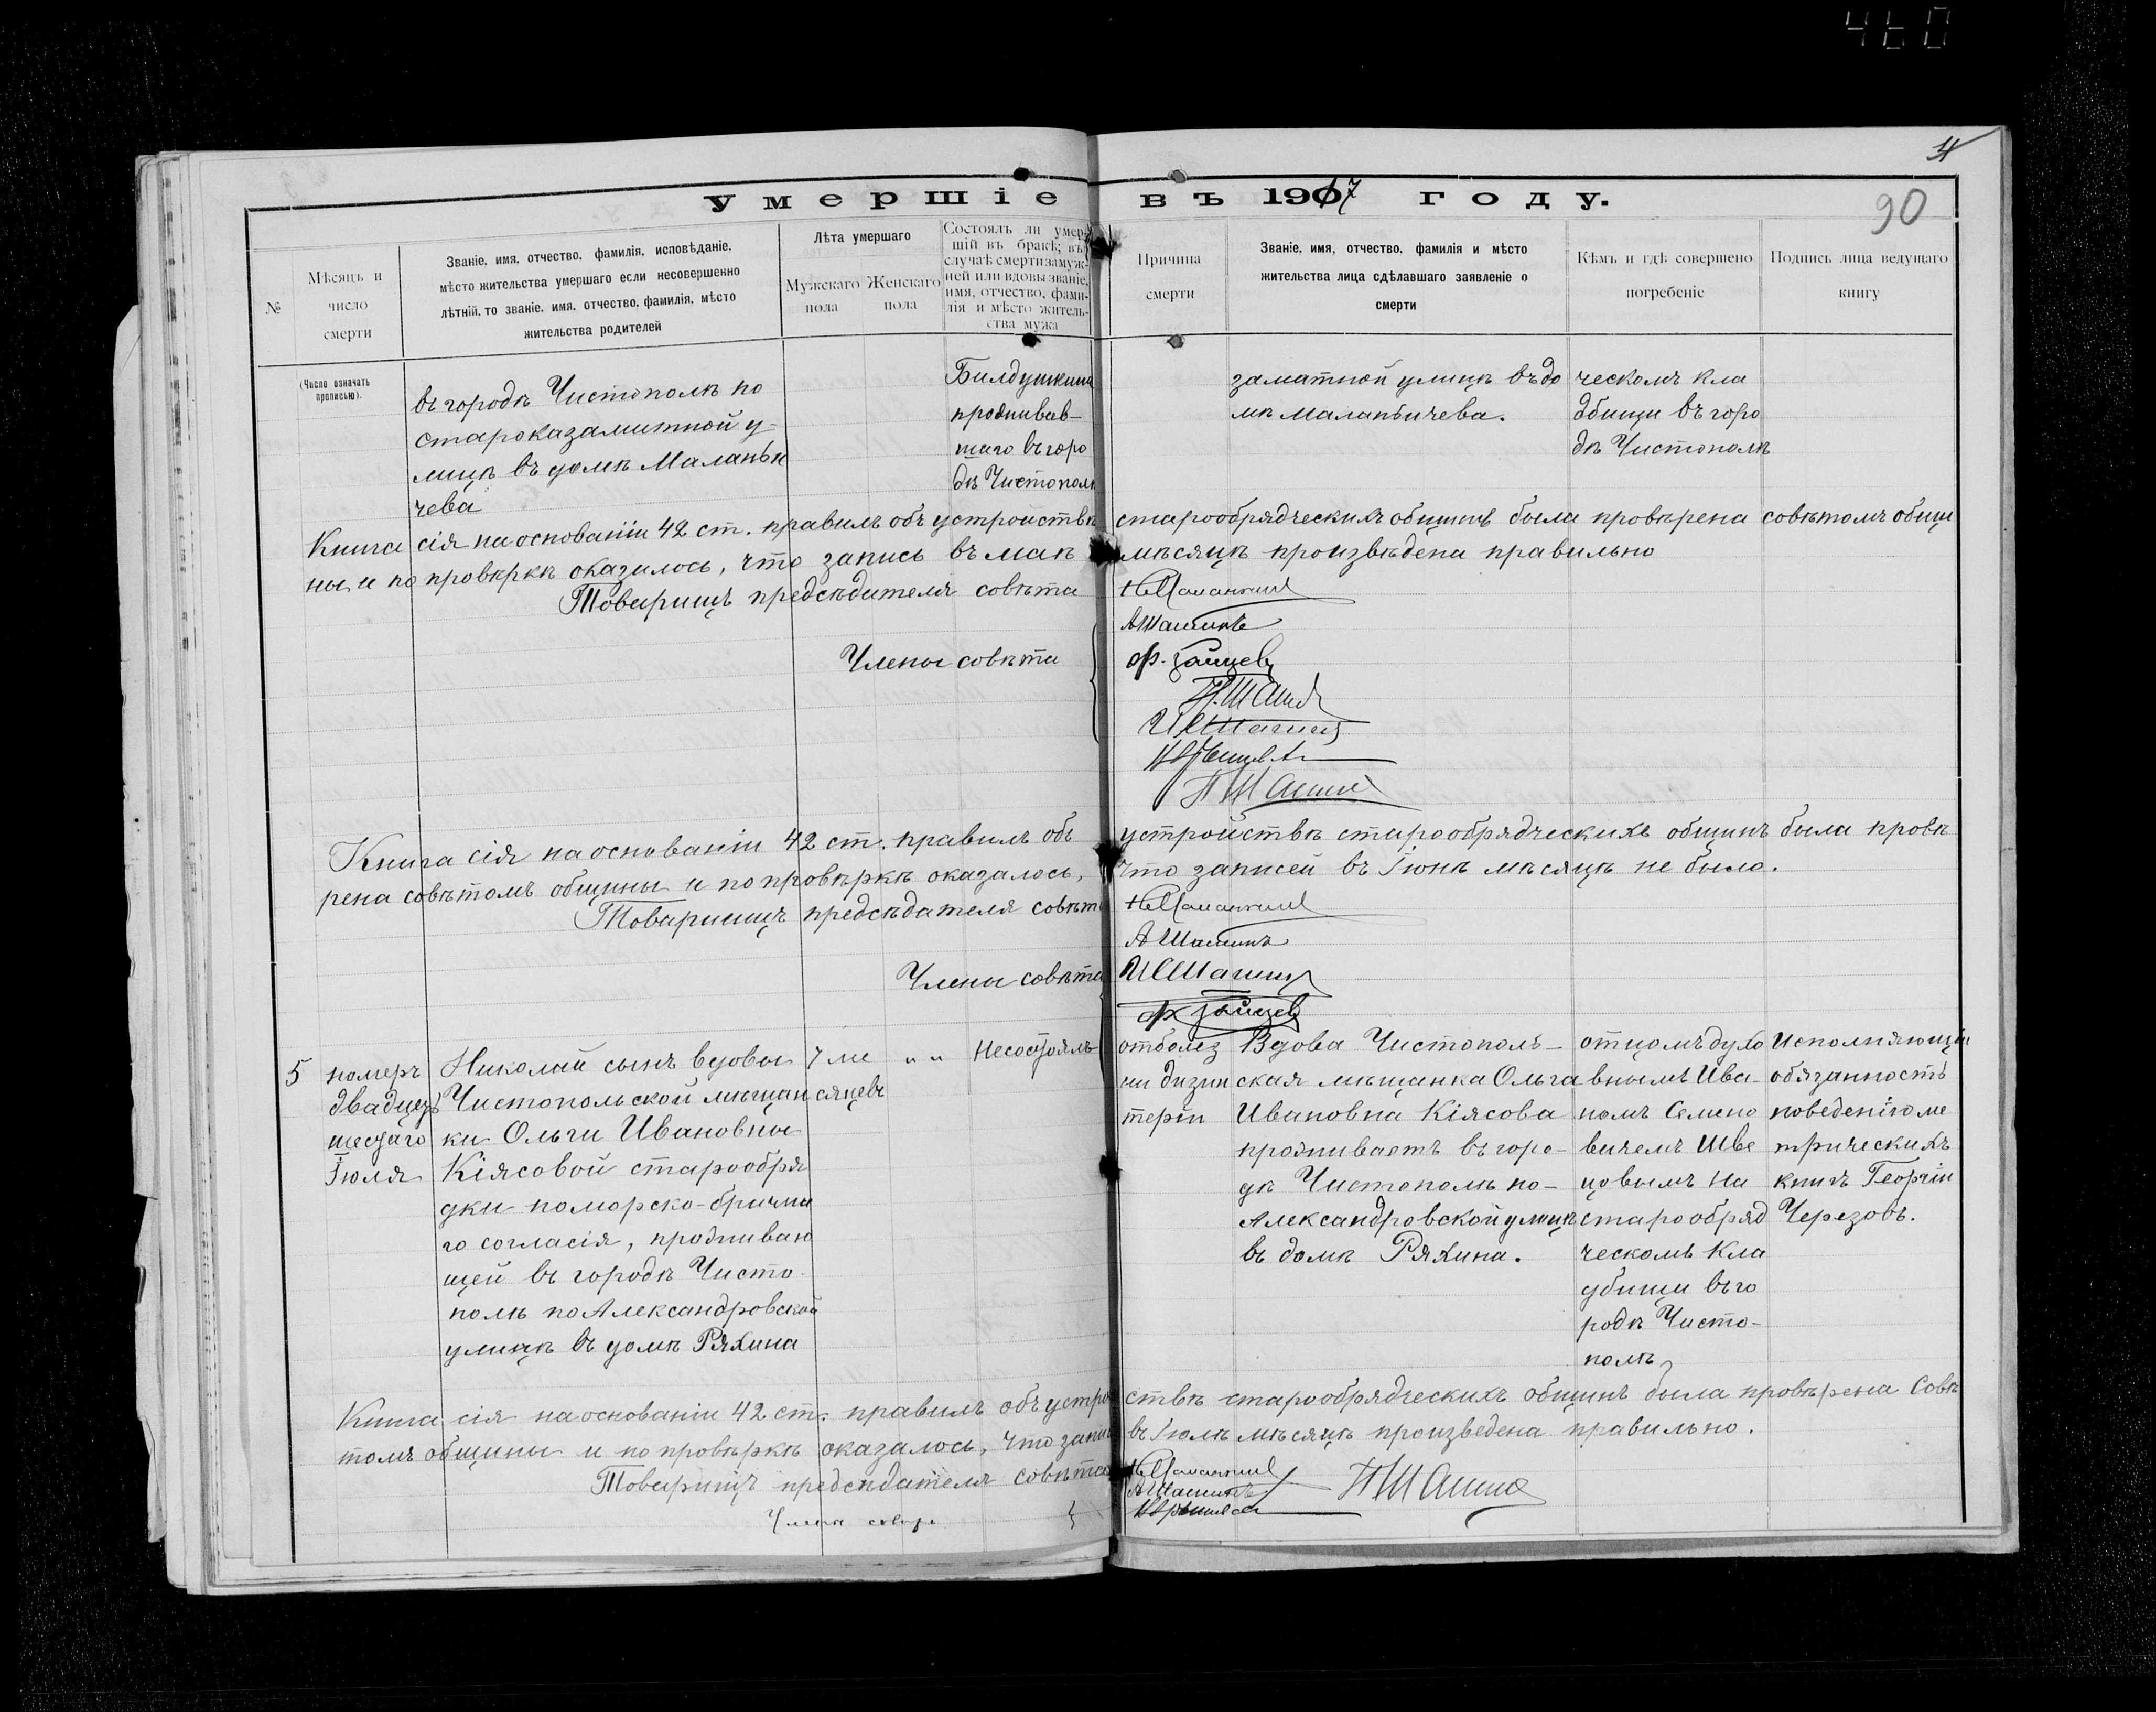 460
90
умершіе въ 1917 году.
№
Мѣсяцъ и
число
смерти
Званіе, имя, отчество, фамилія, исповѣданіе,
мѣсто жительства умершаго если несовершенно
лѣтній, то званіе, имя, отчество, фамилія, мѣсто
жительства родителей
Лѣта умершаго
Мужскаго
пола
Женскаго
пола
Состоялъ ли умер-
шій въ бракѣ; въ
случаѣ смерти замуж-
ней или вдовы званіе,
имя, отчество, фами-
лія и мѣсто житель-
ства мужа
Причина
смерти
Званіе, имя, отчество, фамилія и мѣсто
жительства лица сдѣлавшаго заявленіе о
смерти
Кѣмъ и гдѣ совершено
погребеніе
Подпись лица ведущаго
книгу
(Число означать
прописью).
въ городѣ Чистополѣ по
староказаматной у-
лицѣ въ домѣ Маланьи
чева
Билдушкина
проживав-
шаго въ горо
дѣ Чистополѣ
заматной улицѣ въ до
мѣ Маланьичева.
ческомъ кла
дбищи въ горо
дѣ Чистополѣ
Книга сія на основаніи 42 ст. правилъ объ устройствѣ старообрядческихъ общинъ была провѣрена совѣтомъ общи
ны и по провѣркѣ оказалось, что запись въ маѣ мѣсяцѣ произвѣдена правильно
Товарищъ предсѣдателя совѣта
АШашинъ
Члены совѣта
Ф. Зайцевъ
Книга сія на основаніи 42 ст. правилъ объ устройствѣ старообрядческихъ общинъ была провѣ
рена совѣтомъ общины и по провѣркѣ оказалось, что записей въ Іюнѣ мѣсяцѣ не было.
Товарищъ предсѣдателя совѣта
А Шашинъ
Члены совѣта
Ф Зайцевъ
5
померъ
двадцать
шестаго
Іюля
Николай сынъ вдовы
Чистопольской мѣщан
ки Ольги Ивановны
Кіясовой старообря
дки поморско-брачна
го согласія, проживаю
щей въ городѣ Чисто
полѣ по Александровской
улицѣ въ домѣ Ряхина
7 ме
сяцевъ
" "
Несостоялъ
отъ болез
ни дизин
теріи
Вдова Чистополь-
ская мѣщанка Ольга
Ивановна Кіясова
проживаетъ въ горо-
дѣ Чистополь по-
Александровской улицѣ
въ домѣ Ряхина.
отцомъ духо
внымъ Ива-
номъ Семено
вичемъ Шве
цовымъ на
старообряд
ческомъ кла
дбищи въ го
родѣ Чисто-
полѣ
Исполняющій
обязанность
поведенію ме
трическихъ
книгъ Георгій
Черезовъ.
Книга сія на основаніи 42 ст. правилъ объ устройствѣ старообрядческихъ общинъ была провѣрена Совѣ
томъ общины и по провѣркѣ оказалось, что запись въ Іюлѣ мѣсяцѣ произведена правильно.
Товарищъ предсѣдателя совѣта
АШашинъ
Члены совѣта